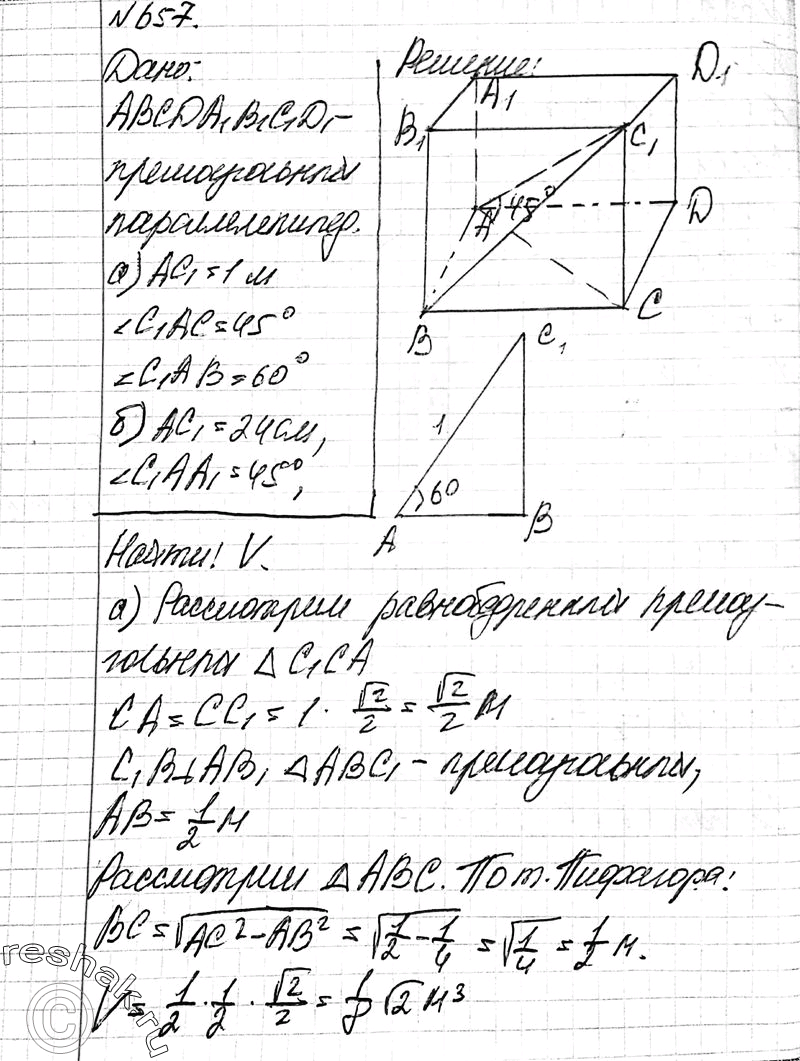 №657.
Дано:
ABCDA₁B₁C₁D₁-
прямоугольный
параллелепипед.
а) AC₁=1м
∠C₁AC=45°
∠C₁AB=60°
б) AC₁=24см,
∠C₁AA₁=45°,
Решение:
A₁
D₁
B₁
C₁
A
45°
D
B
C
C₁
1
60
A
B
Найти: V.
а) Рассмотрим равнобедренный прямоу-
гольный △C₁CA
CA=CC₁=1·√2/2=√2/2 м
C₁B⊥AB, △ABC₁-прямоугольный,
AB=1/2 м
Рассмотрим △ABC. По т. Пифагора:
BC=√(AC²-AB²)=√(1/2-1/4)=√(1/4)=1/2 м.
V=1/2·1/2·√2/2=1/8√2 м³
reshak.ru
©